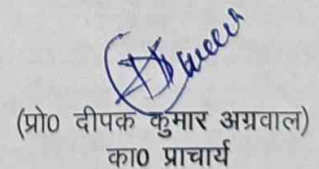 (प्रो0 दीपक कुमार अग्रवाल)
का0 प्राचार्य